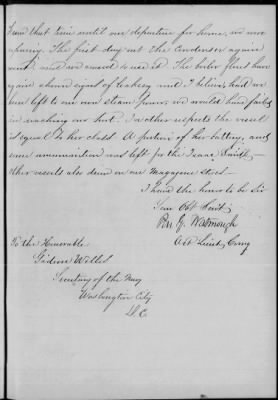 From that time until our departure for home, we were
The first day out the Condenser again
and we ceased to use it. The boiler flues have
again shown signs of leaking and I believe had we
been left to our own steam power, we would have failed
in reaching our port. In other respects the vessel
is equal to her class. A portion of her battery, and
some ammunition was left for the Isaac Smith,
other vessels also drew on our Magazine Stores—
I have the honor to be Sir
Your Obt Servt
Pen G. Watmough
Act Lieut Comg
To the Honorable
Gideon Welles
Secretary of the Navy
Washington City
D.C.